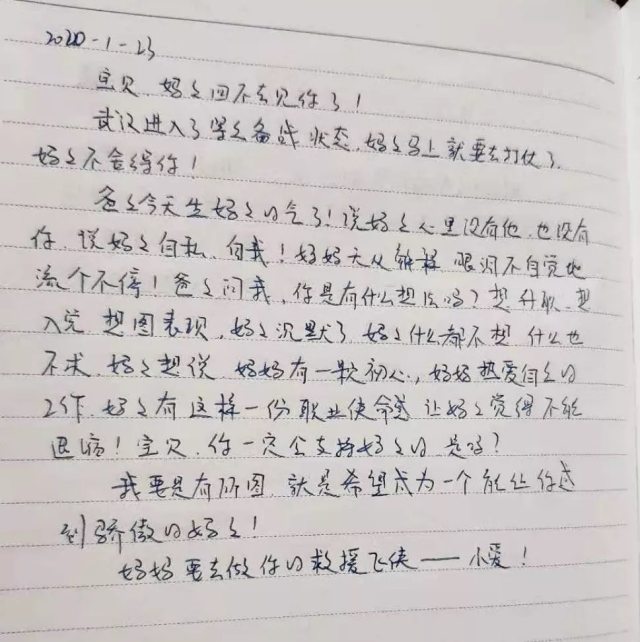 2020-1-23
宝贝 妈妈回不去见你了！
武汉进入了紧急备战状态，妈妈马上就要去打仗了，
妈妈不舍得你！
爸爸今天生妈妈的气了！说妈妈心里没有他，也没有
你，说妈妈自私，自我！妈妈无从解释 眼泪不自觉地
流个不停！爸爸问我，你是有什么想法吗？想升职，想
入党 想图表现，妈妈沉默了 妈妈什么都不想 什么也
不求，妈妈想说 妈妈有一颗初心，妈妈热爱自己的
工作，妈妈有这样一份职业使命感 让妈妈觉得不能
退缩！宝贝，你一定会支持妈妈的 是吗？
我要是有所图，就是希望成为一个能让你感
到骄傲的妈妈！
妈妈要去做你的救援飞侠——小爱！